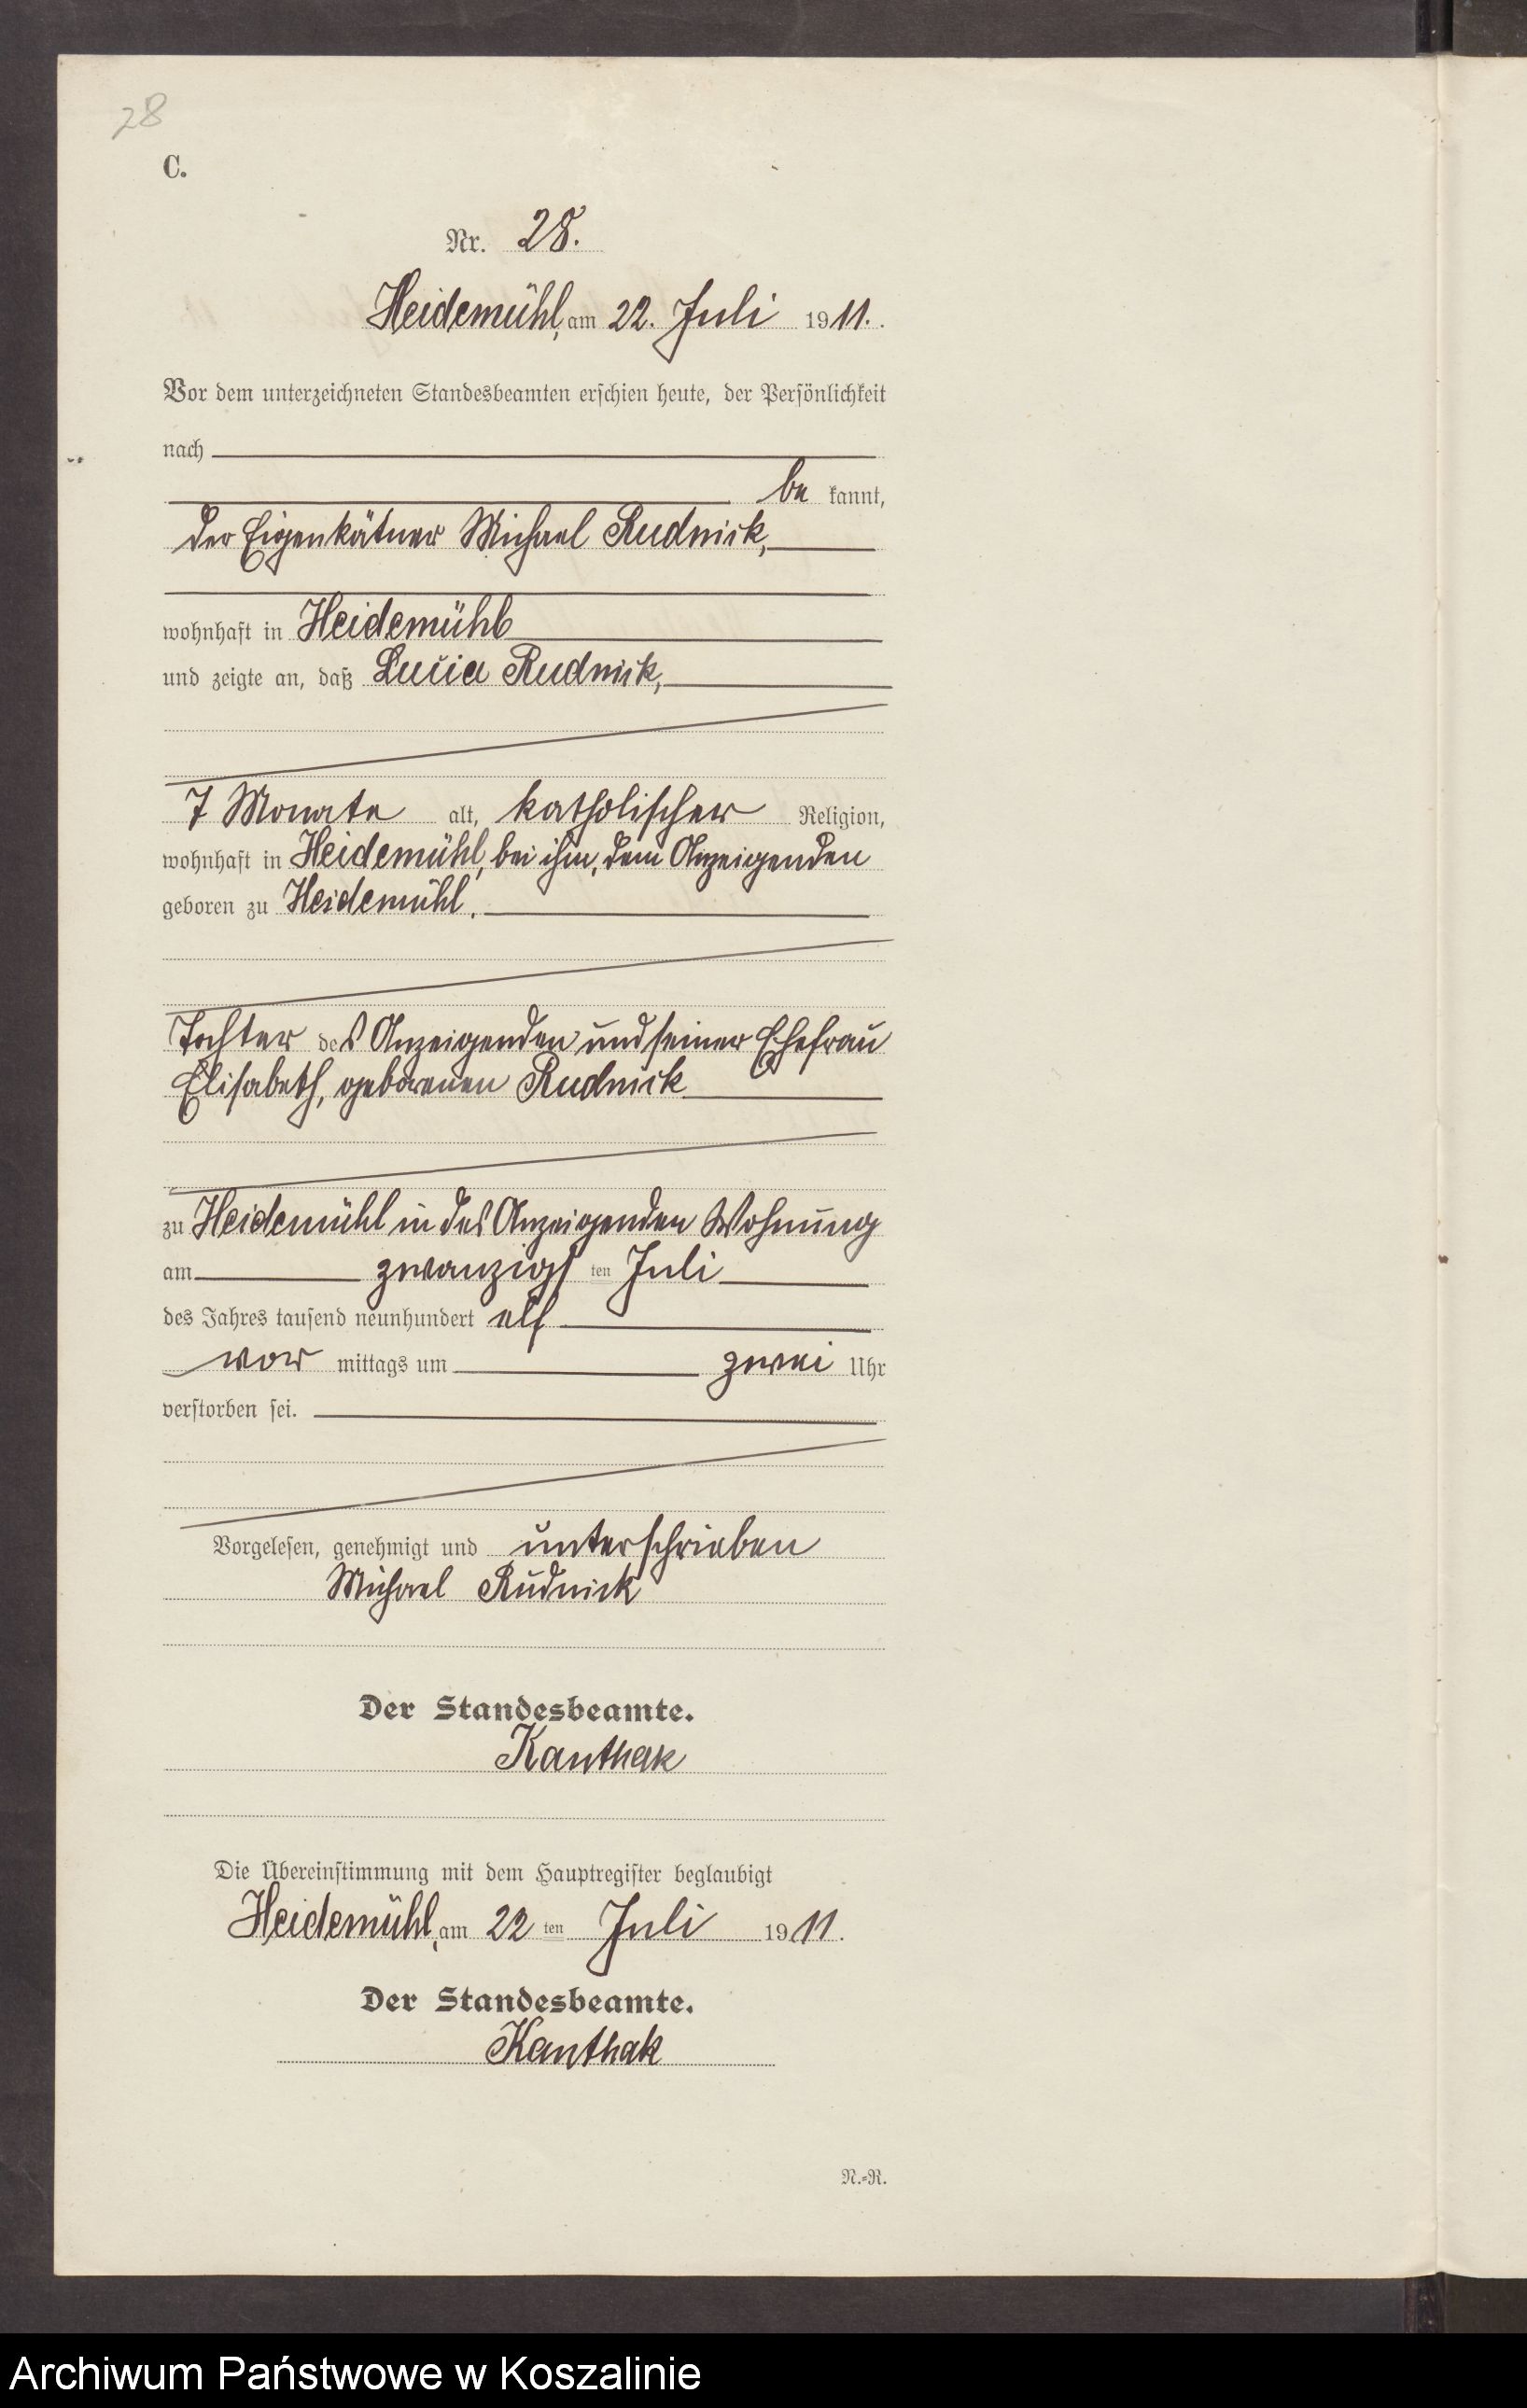 28
C.
Nr. 28.
Heidemühl, am 22. Juli 1911.
Vor dem unterzeichneten Standesbeamten erschien heute, der Persönlichkeit
nach
be kannt,
der Eigenkätner Michael Rudnick,
wohnhaft in Heidemühl
und zeigte an, daß Lucia Rudnick,
7 Monate alt, katholischer Religion,
wohnhaft in Heidemühl, bei ihm, dem Anzeigenden
geboren zu Heidemühl,
Tochter des Anzeigenden und seiner Ehefrau
Elisabeth, geborenen Rudnick
zu Heidemühl in des Anzeigenden Wohnung
am zwanzigsten Juli
des Jahres tausend neunhundert elf
vor mittags um zwei Uhr
verstorben sei.
Vorgelesen, genehmigt und unterschrieben
Michael Rudnick
Der Standesbeamte.
Kanthak
Die Übereinstimmung mit dem Hauptregister beglaubigt
Heidemühl, am 22 ten Juli 1911.
Der Standesbeamte.
Kanthak
N.-R.
Archiwum Państwowe w Koszalinie